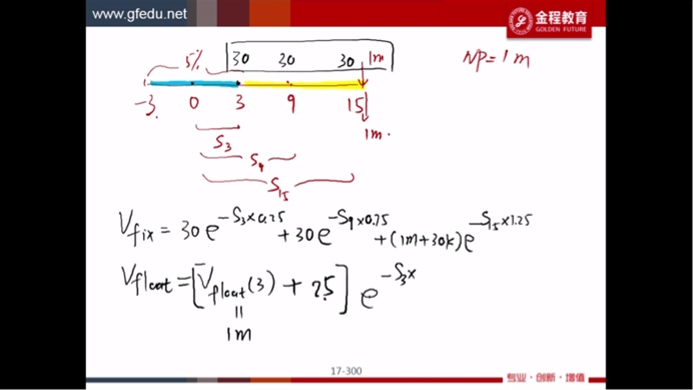 www.gfedu.net
金程教育
GOLDEN FUTURE
5% 30 30 30 1m
NP = 1m
-3 0 3 9 15
1m.
S3
S9
S15
Vfix = 30e^{-S3×0.25} + 30e^{-S9×0.75} + (1m+30k)e^{-S15×1.25}
Vfloat = [Vfloat(3) + 25] e^{-S3×}
||
1m
17-300
专业·创新·增值